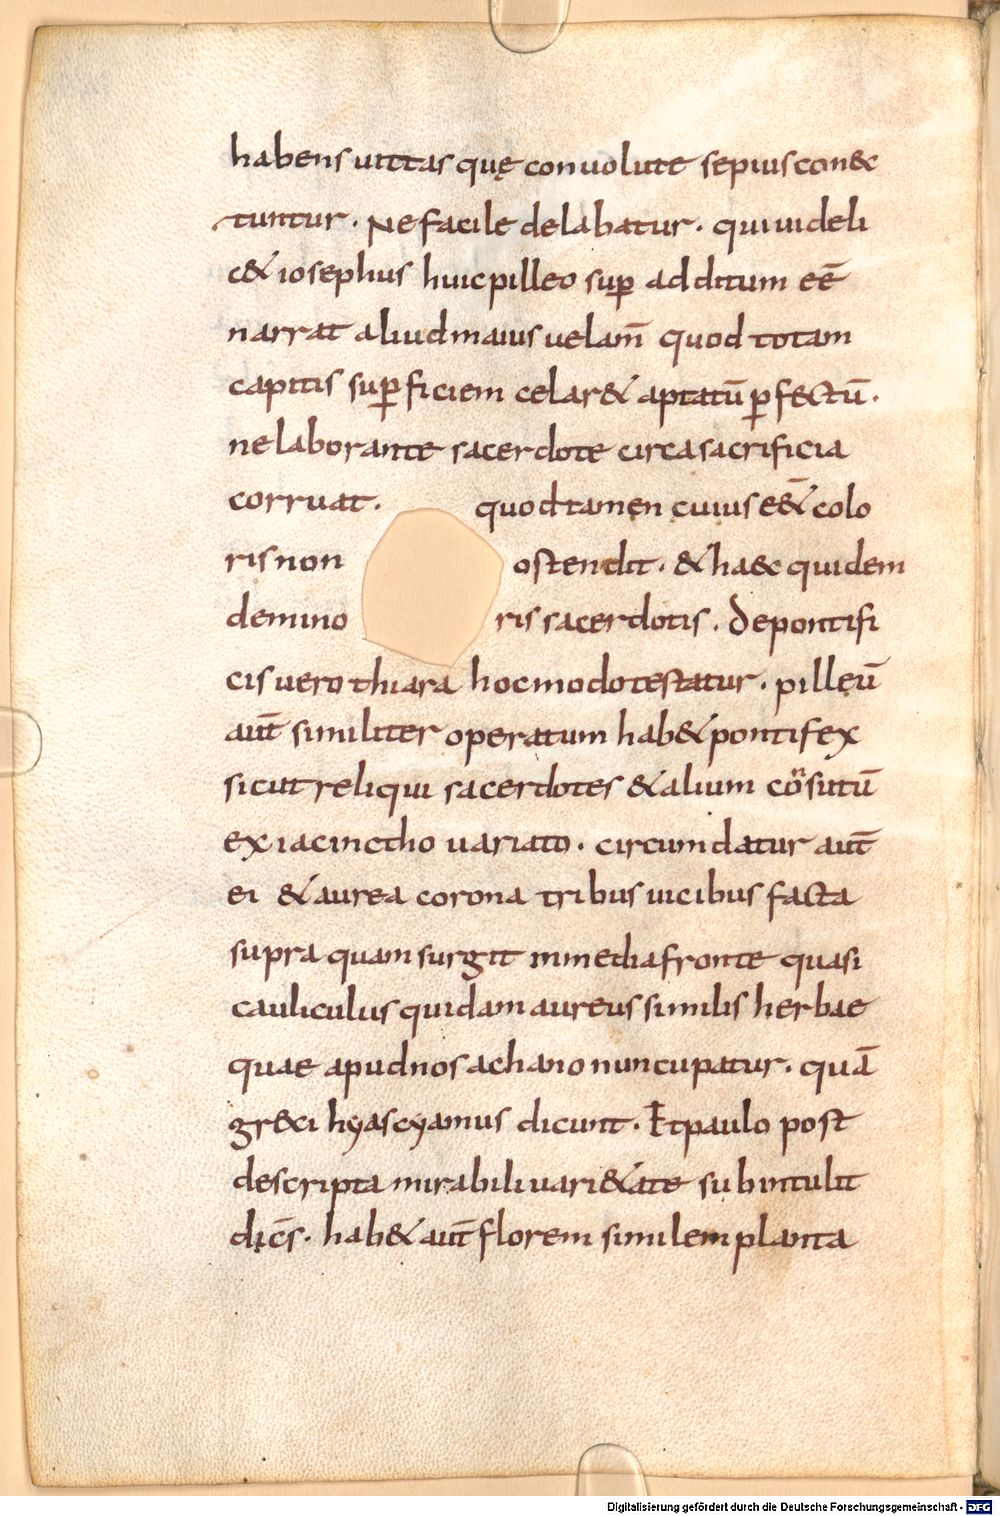 habens uittas quę conuolute sepius con&c
tuntur. Ne facile delabatur. qui uideli
c& iosephus huic pilleo sup̄ additum eē
narrat aliud maius uelam̄ quod totam
capitis sup̄ficiem celar& aptatū p̄fectū.
ne laborante sacerdote circa sacrificia
corruat. quod tamen cuius e&̄ colo
ris non ostendit. & haec quidem
de mino ris sacerdotis. De pontifi
cis uero thiara hoc modo testatur. pilleū
aut̄ similiter operatum hab& pontifex
sicut reliqui sacerdotes & alium cōnsutū
ex iacinctho uariato. circumdatur aut̄
ei & aurea corona tribus uicibus facta
supra quam surgit in media fronte quasi
cauliculus quidam aureus similis herbae
quae apud nos achano nuncupatur. quā
gr&ci hyascyamus dicunt. Et paulo post
descripta mirabili uari&ate subintulit
dic̄s. hab& aut̄ florem similem planta
Digitalisierung gefördert durch die Deutsche Forschungsgemeinschaft - DFG